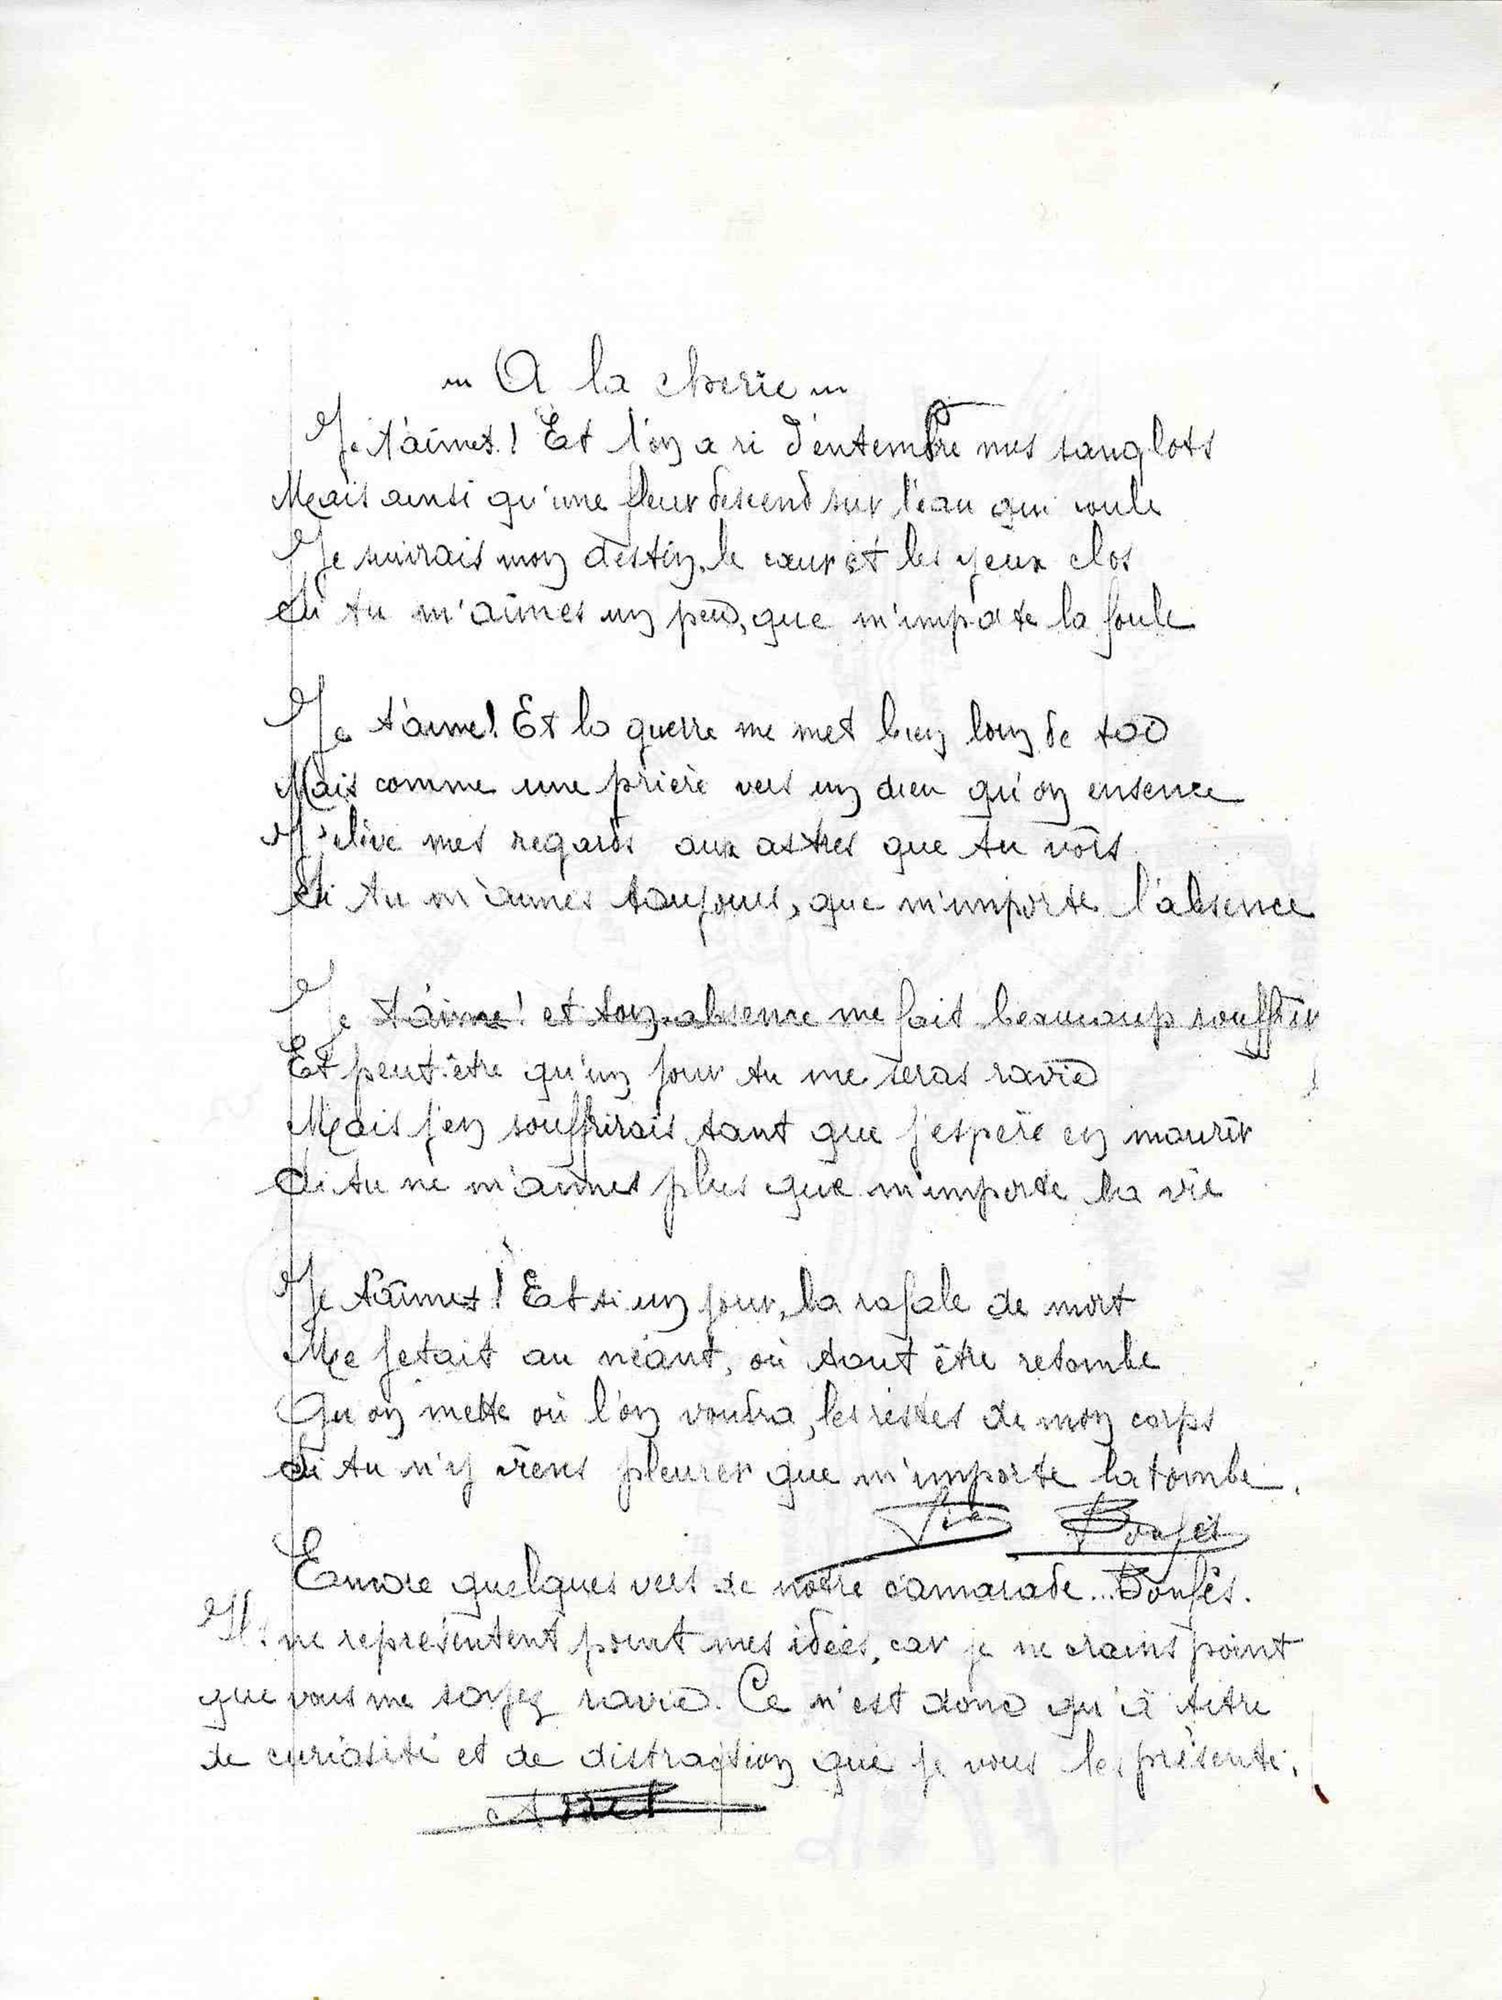 A la cherie
Je t'aimes! Et l'on a ri d'entendre mes sanglots
Mais ainsi qu'une fleur descend sur l'eau qui coule
Je suivrais mon destin, le cœur et les yeux clos
Si tu m'aimes un peu, que m'importe la foule
Je t'aime! Et la guerre me met bien loin de toi
Mais comme une prière vers un dieu qu'on ensence
J'elève mes regards aux astres que tu vois
Si tu m'aimes toujours, que m'importe l'absence
Je t'aime! et ton absence me fait beaucoup souffrir
Et peut-être qu'un jour tu me seras ravie
Mais j'en souffrirais tant que j'espère en mourir
Si tu ne m'aimes plus que m'importe la vie
Je t'aimes! Et si un jour, la rafale de mort
Me jetait au néant, où tout être retombe
Qu'on mette où l'on voudra, les restes de mon corps
Si tu n'y viens pleurer que m'importe la tombe.
Encore quelques vers de notre camarade... Bonfés.
Ils ne représentent point mes idées, car je ne crains point
que vous me soyez ravie. Ce n'est donc qu'à titre
de curiosité et de distraction que je vous les présente.